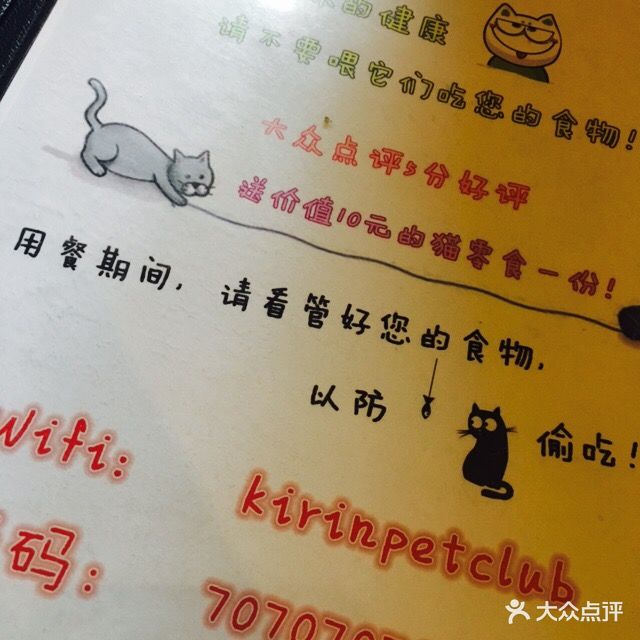 的健康
请不要喂它们吃您的食物!
大众点评5分好评
送价值10元的猫零食一份!
用餐期间,请看管好您的食物,
以防 偷吃!
Wifi: kirinpetclub
码: 707070
大众点评